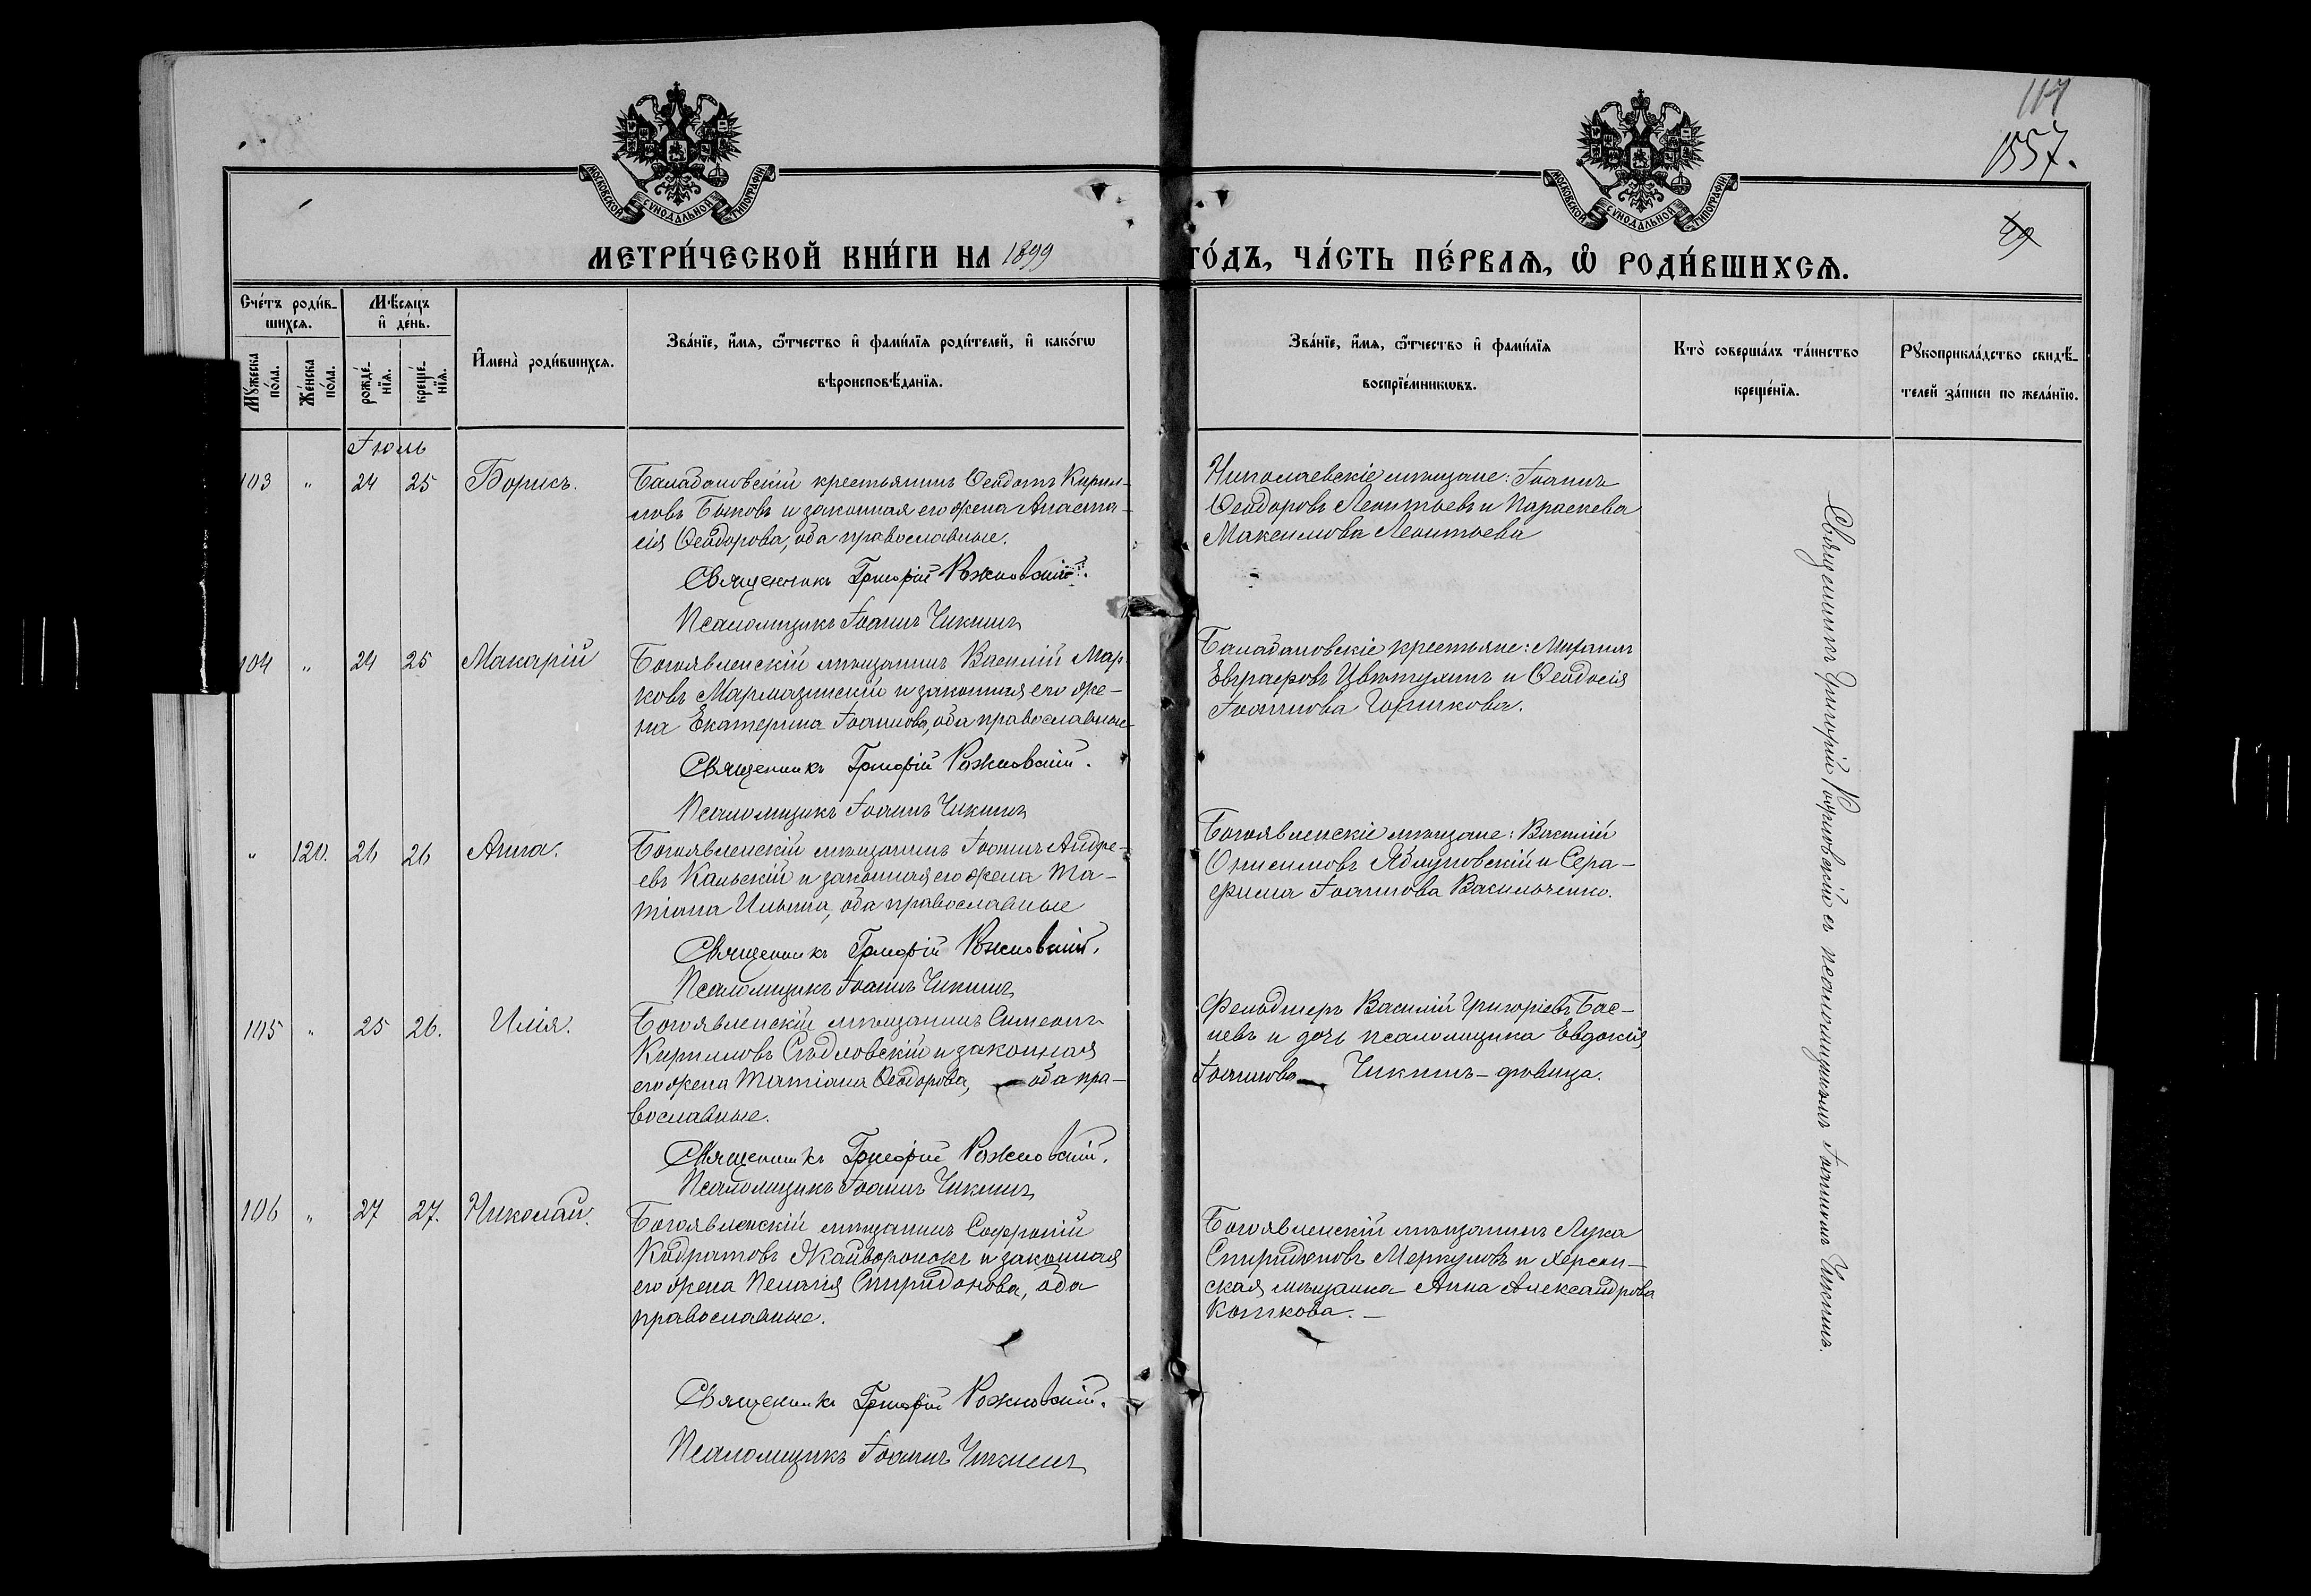 117
1557.
29
МОСКОВСКОЙ СѴНОДАЛЬНОЙ ТИПОГРАФІИ
МОСКОВСКОЙ СѴНОДАЛЬНОЙ ТИПОГРАФІИ
МЕТРИ́ЧЕСКОЙ КНИ́ГИ НА 1899 ГО́ДЪ, ЧА́СТЬ ПЕ́РВАѦ, Ѽ РОДИ́ВШИХСѦ.
Сче́тъ роди́в-
шихсѧ.
Мѣ́сѧцъ
и҆ де́нь.
Мꙋ́жеска по́ла.
Же́нска по́ла.
рожде́-нїѧ.
креще́-нїѧ.
И҆мена̀ роди́вшихсѧ.
Зва́нїе, и҆́мѧ, ѻ҆́тчество и҆ фами́лїѧ роди́телей, и҆ како́гѡ
вѣроисповѣ́данїѧ.
Зва́нїе, и҆́мѧ, ѻ҆́тчество и҆ фами́лїѧ
воспрїе́мникѡвъ.
Кто̀ соверша́лъ та́инство
креще́нїѧ.
Рꙋкоприкла́дство свидѣ́-
телей за́писи по жела́нїю.
Іюль
103 " 24 25 Борисъ.
Баладановскій крестьянинъ Ѳеодотъ Кирил-
ловъ Быковъ и законная его жена Анаста-
сія Ѳеодорова, оба православные.
Священникъ Григорій Рожновскій.
Псаломщикъ Іоаннъ Чикминъ
Николаевскіе мѣщане: Іоаннъ
Ѳеодоровъ Леонтьевъ и Параскева
Максимова Леонтьева
104 " 24 25 Макарій
Богоявленскій мѣщанинъ Василій Мар-
ковъ Мармазинскій и законная его же-
на Екатерина Іоаннова, оба православные
Священникъ Григорій Рожновскій.
Псаломщикъ Іоаннъ Чикминъ
Баладановскіе крестьяне: Михаилъ
Евграфовъ Цвѣтухинъ и Ѳеодосія
Іоаннова Горшкова.
" 120. 26 26 Анна.
Богоявленскій мѣщанинъ Іоаннъ Андре-
евъ Кальскій и законная его жена Та-
тіана Ильина, оба православные
Священникъ Григорій Рожновскій.
Псаломщикъ Іоаннъ Чикминъ
Богоявленскіе мѣщане: Василій
Онисимовъ Яблуновскій и Сера-
фима Іоаннова Васильченко.
105 " 25 26. Илія.
Богоявленскій мѣщанинъ Симеонъ
Кирилловъ Сѣдловскій и законная
его жена Татіана Ѳеодорова, оба пра-
вославные.
Священникъ Григорій Рожновскій.
Псаломщикъ Іоаннъ Чикминъ
Фельдшеръ Василій Григоріевъ Бас-
невъ и дочь псаломщика Евдокія
Іоаннова Чикминъ - дѣвица.
106 " 27 27. Николай.
Богоявленскій мѣщанинъ Софроній
Кодратовъ Жайворонокъ и законная
его жена Пелагія Спиридонова, оба
православные.
Священникъ Григорій Рожновскій.
Псаломщикъ Іоаннъ Чикминъ
Богоявленскій мѣщанинъ Лука
Спиридоновъ Меркуловъ и херсон-
ская мѣщанка Анна Александрова
Котикова. -
Священникъ Григорій Рожновскій съ псаломщикомъ Іоанномъ Чикминъ.